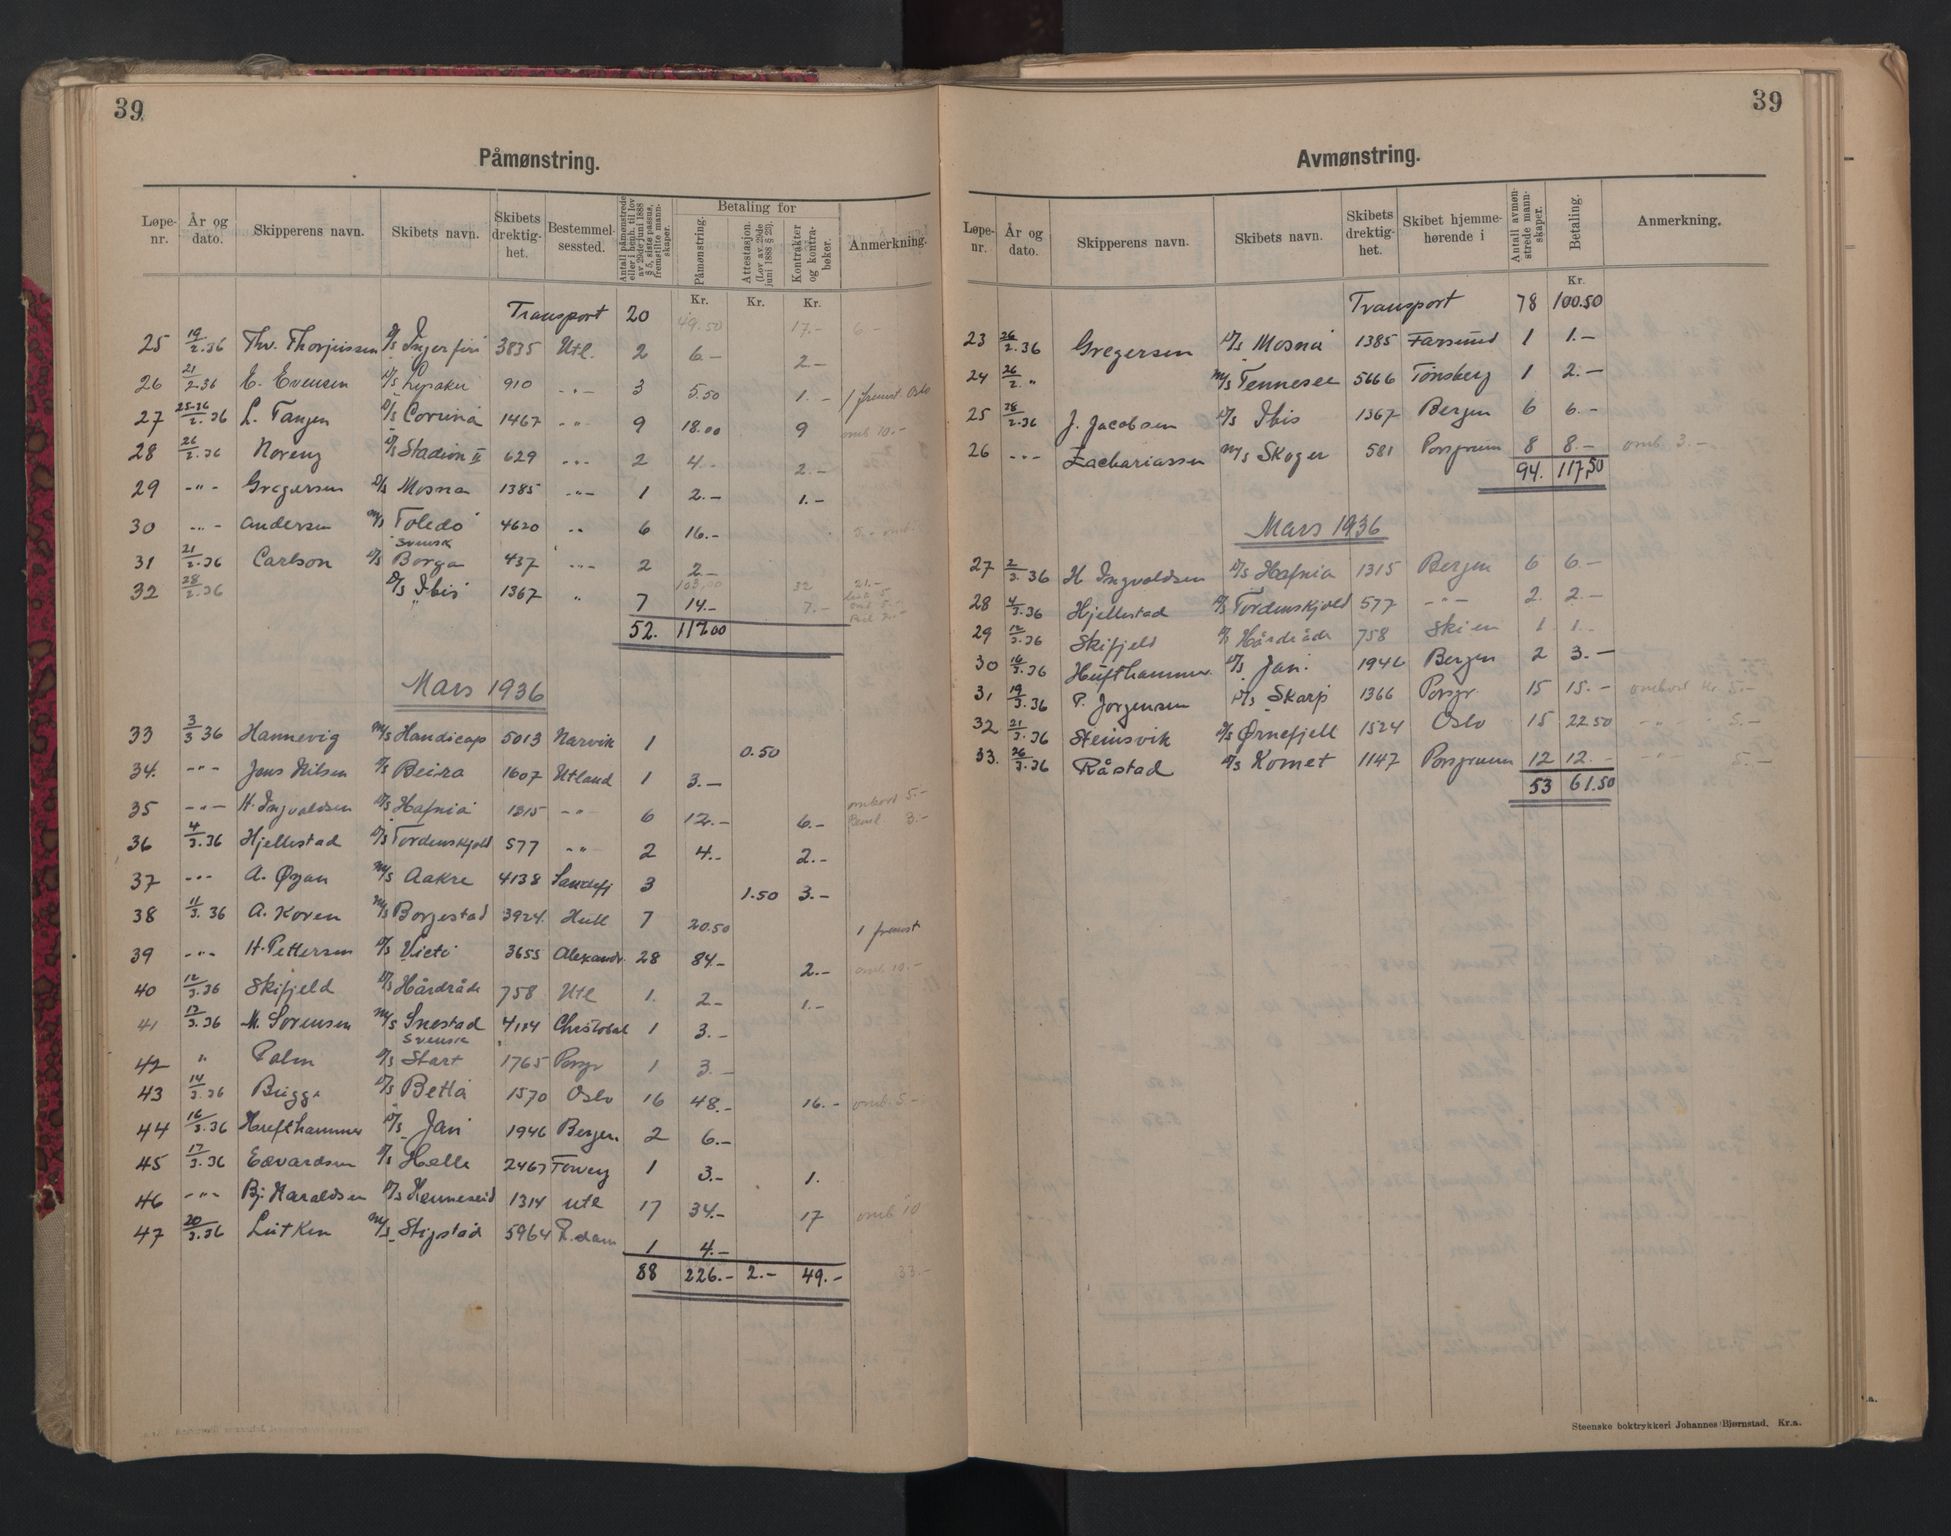 39
Påmønstring.
Løpe-nr. | År og dato. | Skipperens navn. | Skibets navn. | Skibets drektig-het. | Bestemmel-sessted. | Antall påmønstrede eller i henh. til lov av 29de juni 1888 § 5, siste passus, fremstilte mann-skaper. | Betaling for | Påmønstring. | Attestasjon. (Lov av 29de juni 1888 § 23). | Kontrakter og kontra-bøker. | Anmerkning.
Kr. Kr. Kr.
Transport 20 49.50 17.- 6.-
25 19/2.36 Thv. Thorjussen D/S Ingerfire 3835 Utl. 2 6.- 2.-
26 21/2.36 E. Evensen D/S Lysaker 910 -"- 3 5.50 1.- 1 fremst. Oslo
27 25-26/2.36 L. Tangen D/S Coruna 1467 -"- 9 18.00 9 omb 10.-
28 26/2.36 Noreng D/S Stadion II 629 -"- 2 4.- 2.-
29 -"- Gregersen D/S Mosna 1385 -"- 1 2.- 1.-
30 -"- Andersen M/S Toledo 4620 " 6 16.- 5.- omb.
31 21/2.36 Carlson svensk D/S Borga 437 -"- 2 2.-
103,00 32 21.-
32 28/2.36 D/S Ibis 1367 " 7 14.- 7.-
52. 117.00
Mars 1936
33 3/3 36 Hannevig M/S Handicap 5013 Narvik 1 0.50
34. -"- Jens Nilsen D/S Beira 1607 Utland 1 3.-
35 -"- H. Ingvaldsen D/S Hafnia 1315 -"- 6 12.- 6.- ombord 5.-
36 4/3.36 Hjellestad D/S Tordenskjold 577 -"- 2 4.- 2.-
37 -"- A. Øyan M/S Aakre 4138 Sandefj 3 1.50 3.-
38 11/3.36 A. Koren M/S Borgestad 3924. Hull 7 20.50 1 fremst
39 -"- H. Pettersen D/S Victi 3655 Alexandr. 28 84.- 2.- omb 10.-
40 12/3.36 Skifjeld D/S Hårdråde 758 Utl 1. 2.- 1.-
41 13/3.36 M. Sorensen M/S Snestad 4114 Christobal 1 3.-
42 " Palm svensk D/S Start 1765 Porsgr 1 3.-
43 14/3.36 Bugge D/S Betta 1570 Oslo 16 48.- 16.- omb. 5-
44 16/3.36 Hufthammer D/S Jan 1946 Bergen 2 6.-
45 17/3.36 Edvardsen D/S Helle 2467 1 3.- 1.
46 -"- Bj. Haraldsen D/S Henneseid 1314 Utl 17 34.- 17 omb 10
47 20/3.36 Lütken M/S Stigstad 5964 R.dam 1 4.-
88 226.- 2.- 49.- 33.-
39
Avmønstring.
Løpe-nr. | År og dato. | Skipperens navn. | Skibets navn. | Skibets drektig-het. | Skibet hjemme-hørende i | Antall avmøn-strede mann-skaper. | Betaling. | Anmerkning.
Kr.
Transport 78 100.50
23 26/2.36 Gregersen D/S Mosna 1385 Farsund 1 1.-
24 26/2. " M/S Tennesee 5666 Tønsberg 1 2.-
25 28/2.36 J. Jacobsen D/S Ibis 1367 Bergen 6 6.-
26 -"- Zachariassen M/S Skoger 581 Porsgrunn 8 8.- omb. 3.-
94. 117,50
Mars 1936
27 2/3.36 H Ingvaldsen D/S Hafnia 1315 Bergen 6 6.-
28 4/3.36 Hjellestad D/S Tordenskjold 577 -"- 2. 2.-
29 12/3.36 Skifjeld D/S Hårdråde 758 Skien 1 1.-
30 16/3.36 Hufthammer D/S Jan. 1946 Bergen 2 3.-
31 19/3.36 P. Jorgensen D/S Skarp 1366 Porsgr. 15 15.- ombord Kr. 5.-
32 21/3.36 Steinsvik D/S Ørnefjell 1524 Oslo 15 22.50 -"- 5.-
33. 26/3.36 Råstad D/S Komet 1147 Porsgrunn 12 12.- -"- 5.-
53 61.50
Steenske boktrykkeri Johannes Bjørnstad, Kr.a.